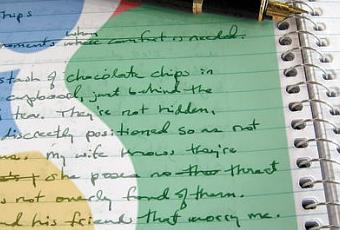 hips
when
moments where comfort is needed.
stash of chocolate chips in
cupboard, just behind the
tea. They're not hidden,
discreetly positioned so as not
me. My wife knows they're
she poses no threat
s not overly fond of them.
nd his friends that worry me.